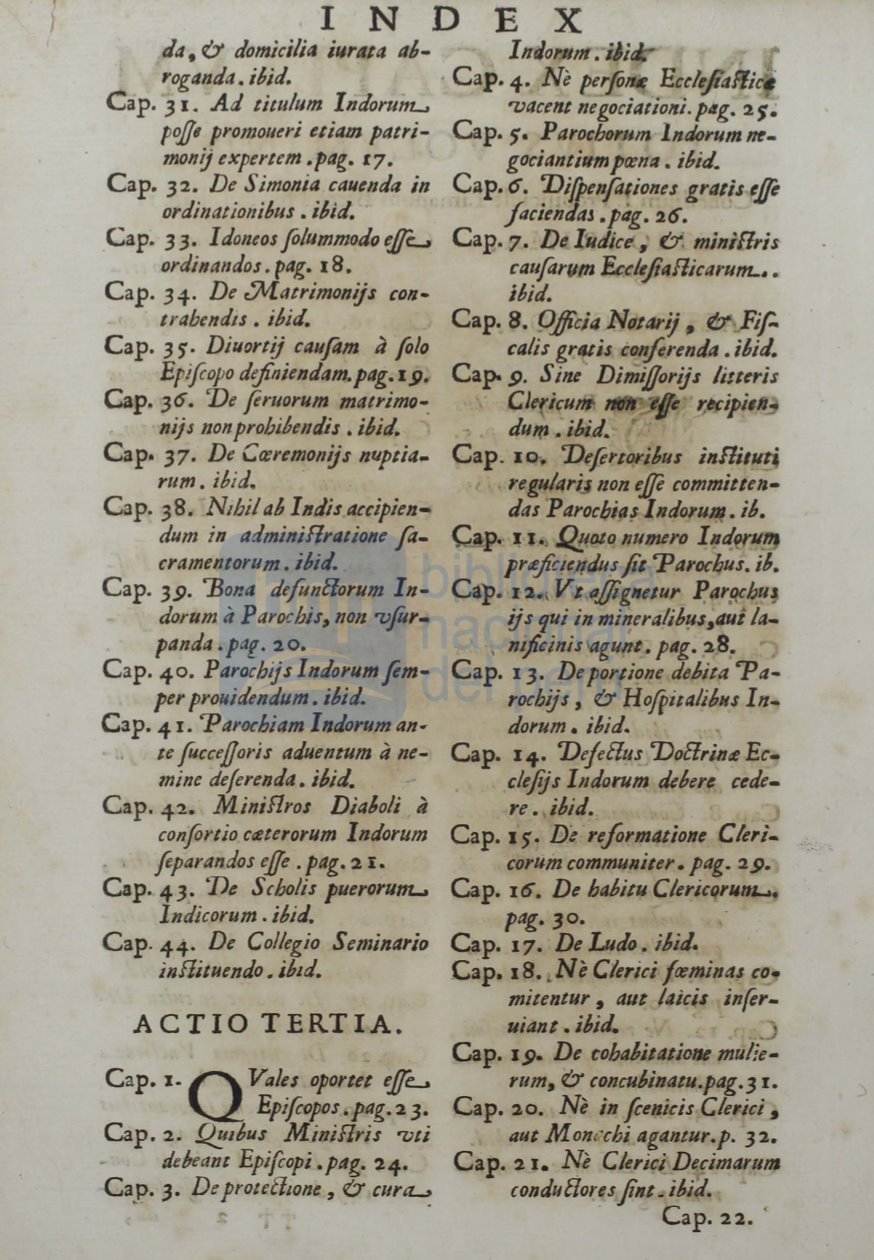 INDEX
da, & domicilia iurata ab-
roganda. ibid.
Cap. 31. Ad titulum Indorum
poſſe promoueri etiam patri-
monij expertem. pag. 17.
Cap. 32. De Simonia cauenda in
ordinationibus. ibid.
Cap. 33. Idoneos ſolummodo eſſe
ordinandos. pag. 18.
Cap. 34. De Matrimonijs con-
trahendis. ibid.
Cap. 35. Diuortij cauſam à ſolo
Epiſcopo definiendam. pag. 19.
Cap. 36. De ſeruorum matrimo-
nijs non prohibendis. ibid.
Cap. 37. De Cœremonijs nuptia-
rum. ibid.
Cap. 38. Nihil ab Indis accipien-
dum in adminiſtratione ſa-
cramentorum. ibid.
Cap. 39. Bona defunctorum In-
dorum à Parochis, non vſur-
panda. pag. 20.
Cap. 40. Parochijs Indorum ſem-
per prouidendum. ibid.
Cap. 41. Parochiam Indorum an-
te ſucceſſoris aduentum à ne-
mine deferenda. ibid.
Cap. 42. Miniſtros Diaboli à
conſortio cæterorum Indorum
ſeparandos eſſe. pag. 21.
Cap. 43. De Scholis puerorum
Indicorum. ibid.
Cap. 44. De Collegio Seminario
inſtituendo. ibid.
ACTIO TERTIA.
Cap. 1. QVales oportet eſſe
Epiſcopos. pag. 23.
Cap. 2. Quibus Miniſtris vti
debeant Epiſcopi. pag. 24.
Cap. 3. De protectione, & cura
Indorum. ibid.
Cap. 4. Nè perſonæ Eccleſiaſticæ
vacent negociationi. pag. 25.
Cap. 5. Parochorum Indorum ne-
gociantium pœna. ibid.
Cap. 6. Diſpenſationes gratis eſſe
faciendas. pag. 26.
Cap. 7. De Iudice, & miniſtris
cauſarum Eccleſiaſticarum.
ibid.
Cap. 8. Officia Notarij, & Fiſ-
calis gratis conferenda. ibid.
Cap. 9. Sine Dimiſſorijs litteris
Clericum non eſſe recipien-
dum. ibid.
Cap. 10. Deſertoribus inſtituti
regularis non eſſe committen-
das Parochias Indorum. ib.
Cap. 11. Quoto numero Indorum
præficiendus ſit Parochus. ib.
Cap. 12. Vt aſſignetur Parochus
ijs qui in mineralibus, aut la-
nificinis agunt. pag. 28.
Cap. 13. De portione debita Pa-
rochijs, & Hoſpitalibus In-
dorum. ibid.
Cap. 14. Defectus Doctrinæ Ec-
cleſijs Indorum debere cede-
re. ibid.
Cap. 15. De reformatione Cleri-
corum communiter. pag. 29.
Cap. 16. De habitu Clericorum.
pag. 30.
Cap. 17. De Ludo. ibid.
Cap. 18. Nè Clerici fœminas co-
mitentur, aut laicis inſer-
uiant. ibid.
Cap. 19. De cohabitatione mulie-
rum, & concubinatu. pag. 31.
Cap. 20. Nè in ſcenicis Clerici,
aut Monachi agantur. p. 32.
Cap. 21. Nè Clerici Decimarum
conductores ſint. ibid.
Cap. 22.